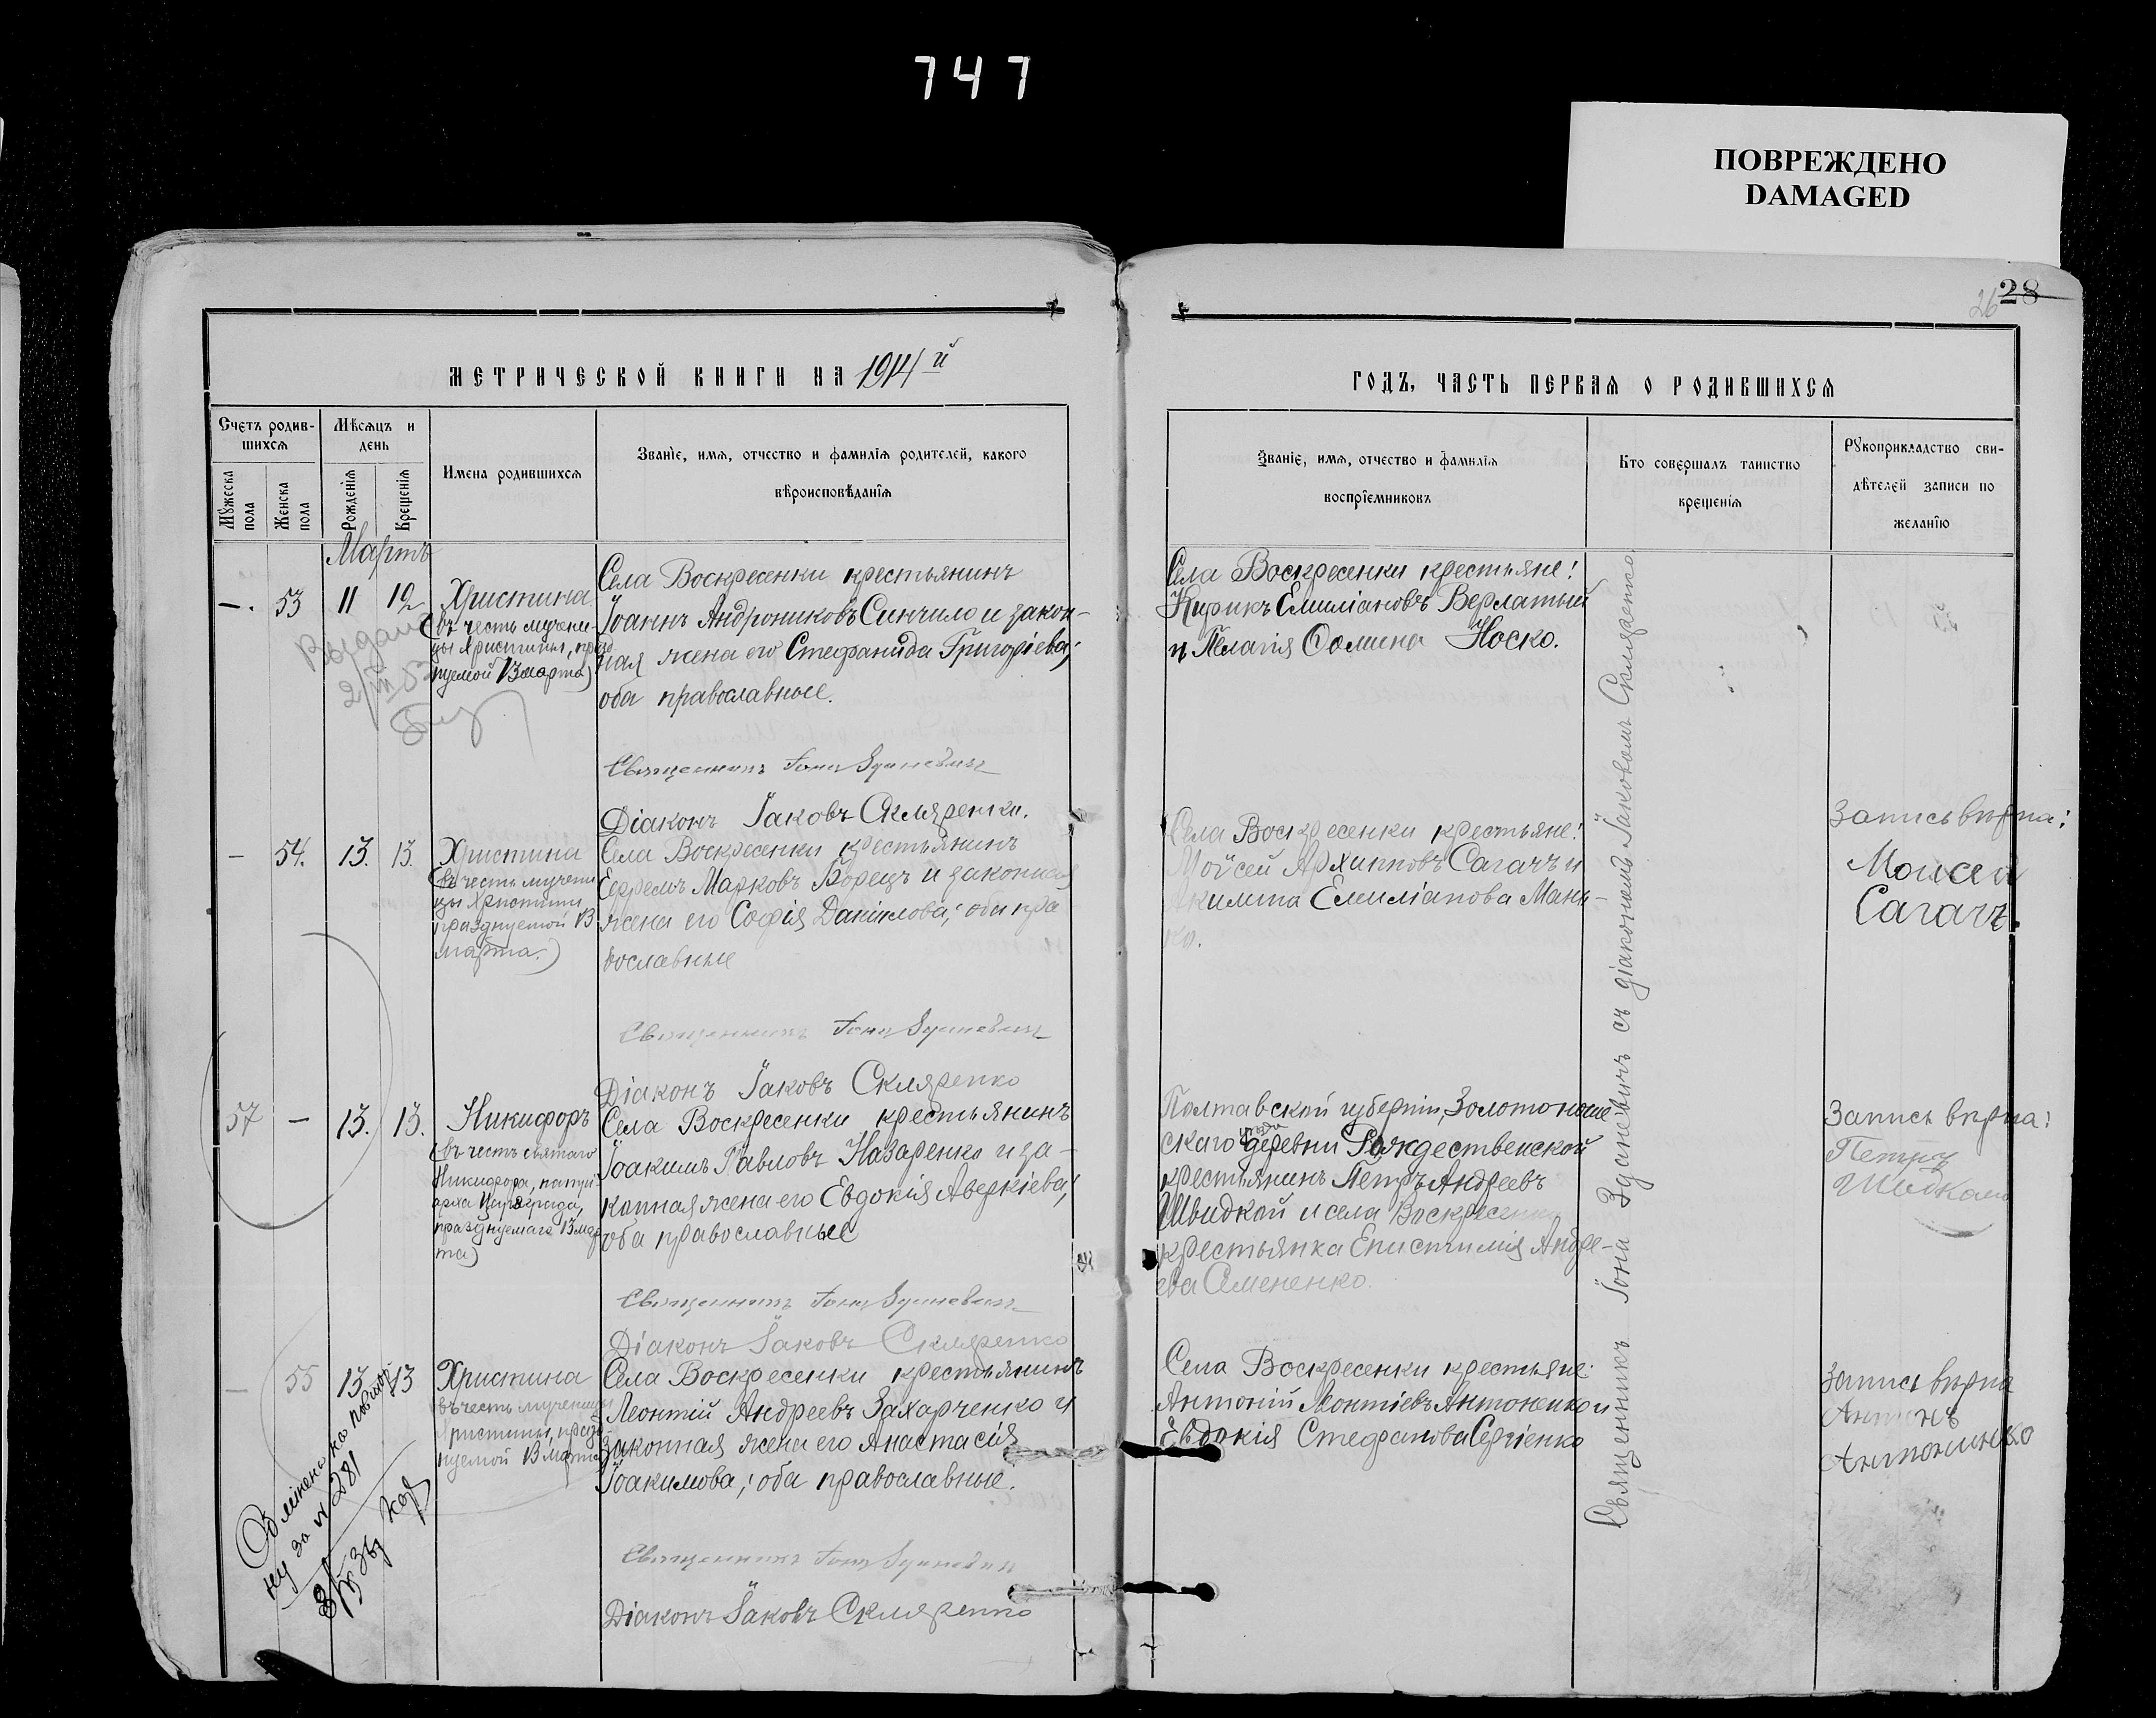 747
ПОВРЕЖДЕНО
DAMAGED
28
26
МЕТРИЧЕСКОЙ КНИГИ НА 1914й
Счетъ родив-
шихся
Мѣсяцъ и
день
Мужеска
пола
Женска
пола
Рожденія
Крещенія
Имена родившихся
Званіе, имя, отчество и фамилія родителей, какого
вѣроисповѣданія
Мартъ
—. 53 11 12
Христина
(въ честь мучени-
цы Христины, празд
нуемой 13 марта)
Села Воскресенки крестьянинъ
Іоаннъ Андрониковъ Синчило и закон-
ная жена его Стефанида Григоріева;
оба православные.
Священникъ Іона Зданевичъ
Діаконъ Іаковъ Скляренко.
— 54. 13. 13.
Христина
(въ честь мучени
цы Христины
празднуемой 13
марта.)
Села Воскресенки крестьянинъ
Ефремъ Марковъ Борецъ и законная
жена его Софія Даніилова; оба пра
вославные
Священникъ Іона Зданевичъ
Діаконъ Іаковъ Скляренко
57 — 13. 13.
Никифоръ
(въ честь святаго
Никифора, патрі
арха Цареграда,
празднуемаго 13 мар
та)
Села Воскресенки крестьянинъ
Іоакимъ Павловъ Назаренко и за-
конная жена его Евдокія Аверкіева;
оба православные
Священникъ Іона Зданевичъ
Діаконъ Іаковъ Скляренко
— 55 13 13
Христина
въ честь мученицы
Христины, празд
нуемой 13 марта
Села Воскресенки крестьянинъ
Леонтій Андреевъ Захарченко и
законная жена его Анастасія
Іоакимова; оба православные.
Священникъ Іона Зданевичъ
Діаконъ Іаковъ Скляренко
ну за № 281
ГОДЪ, ЧАСТЬ ПЕРВАЯ О РОДИВШИХСЯ
Званіе, имя, отчество и фамилія
воспріемниковъ
Кто совершалъ таинство
крещенія
Рукоприкладство сви-
дѣтелей записи по
желанію
Села Воскресенки крестьяне:
Кирикъ Емиліановъ Верлатый
и Пелагія Фомина Носко.
Села Воскресенки крестьяне:
Мойсей Архиповъ Сагачъ и
Акилина Емиліанова Мань-
ко.
Запись вѣрна:
Моисей
Сагачъ.
Полтавской губерніи, Золотоноше
скаго уѣзда деревни Рождественской
крестьянинъ Петръ Андреевъ
Швидкой и села Воскресенки
крестьянка Епистимія Андре-
ева Смененко.
Запись вѣрна:
Петръ
Швидкой
Села Воскресенки крестьяне:
Антоній Леонтіевъ Антоненко и
Евдокія Стефанова Сергіенко
Запись вѣрна
Антонъ
Антоненко
Священникъ Іона Зданевичъ съ діакономъ Іаковомъ Скляренко.